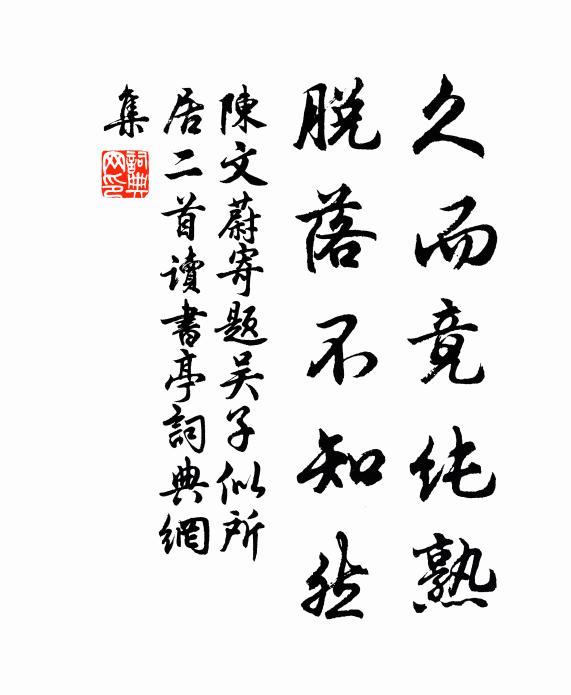 久而竟纯熟
脱落不知然
陳文蔚寄題吴子似所
居二首讀書亭詞典網
集
詞典
网印